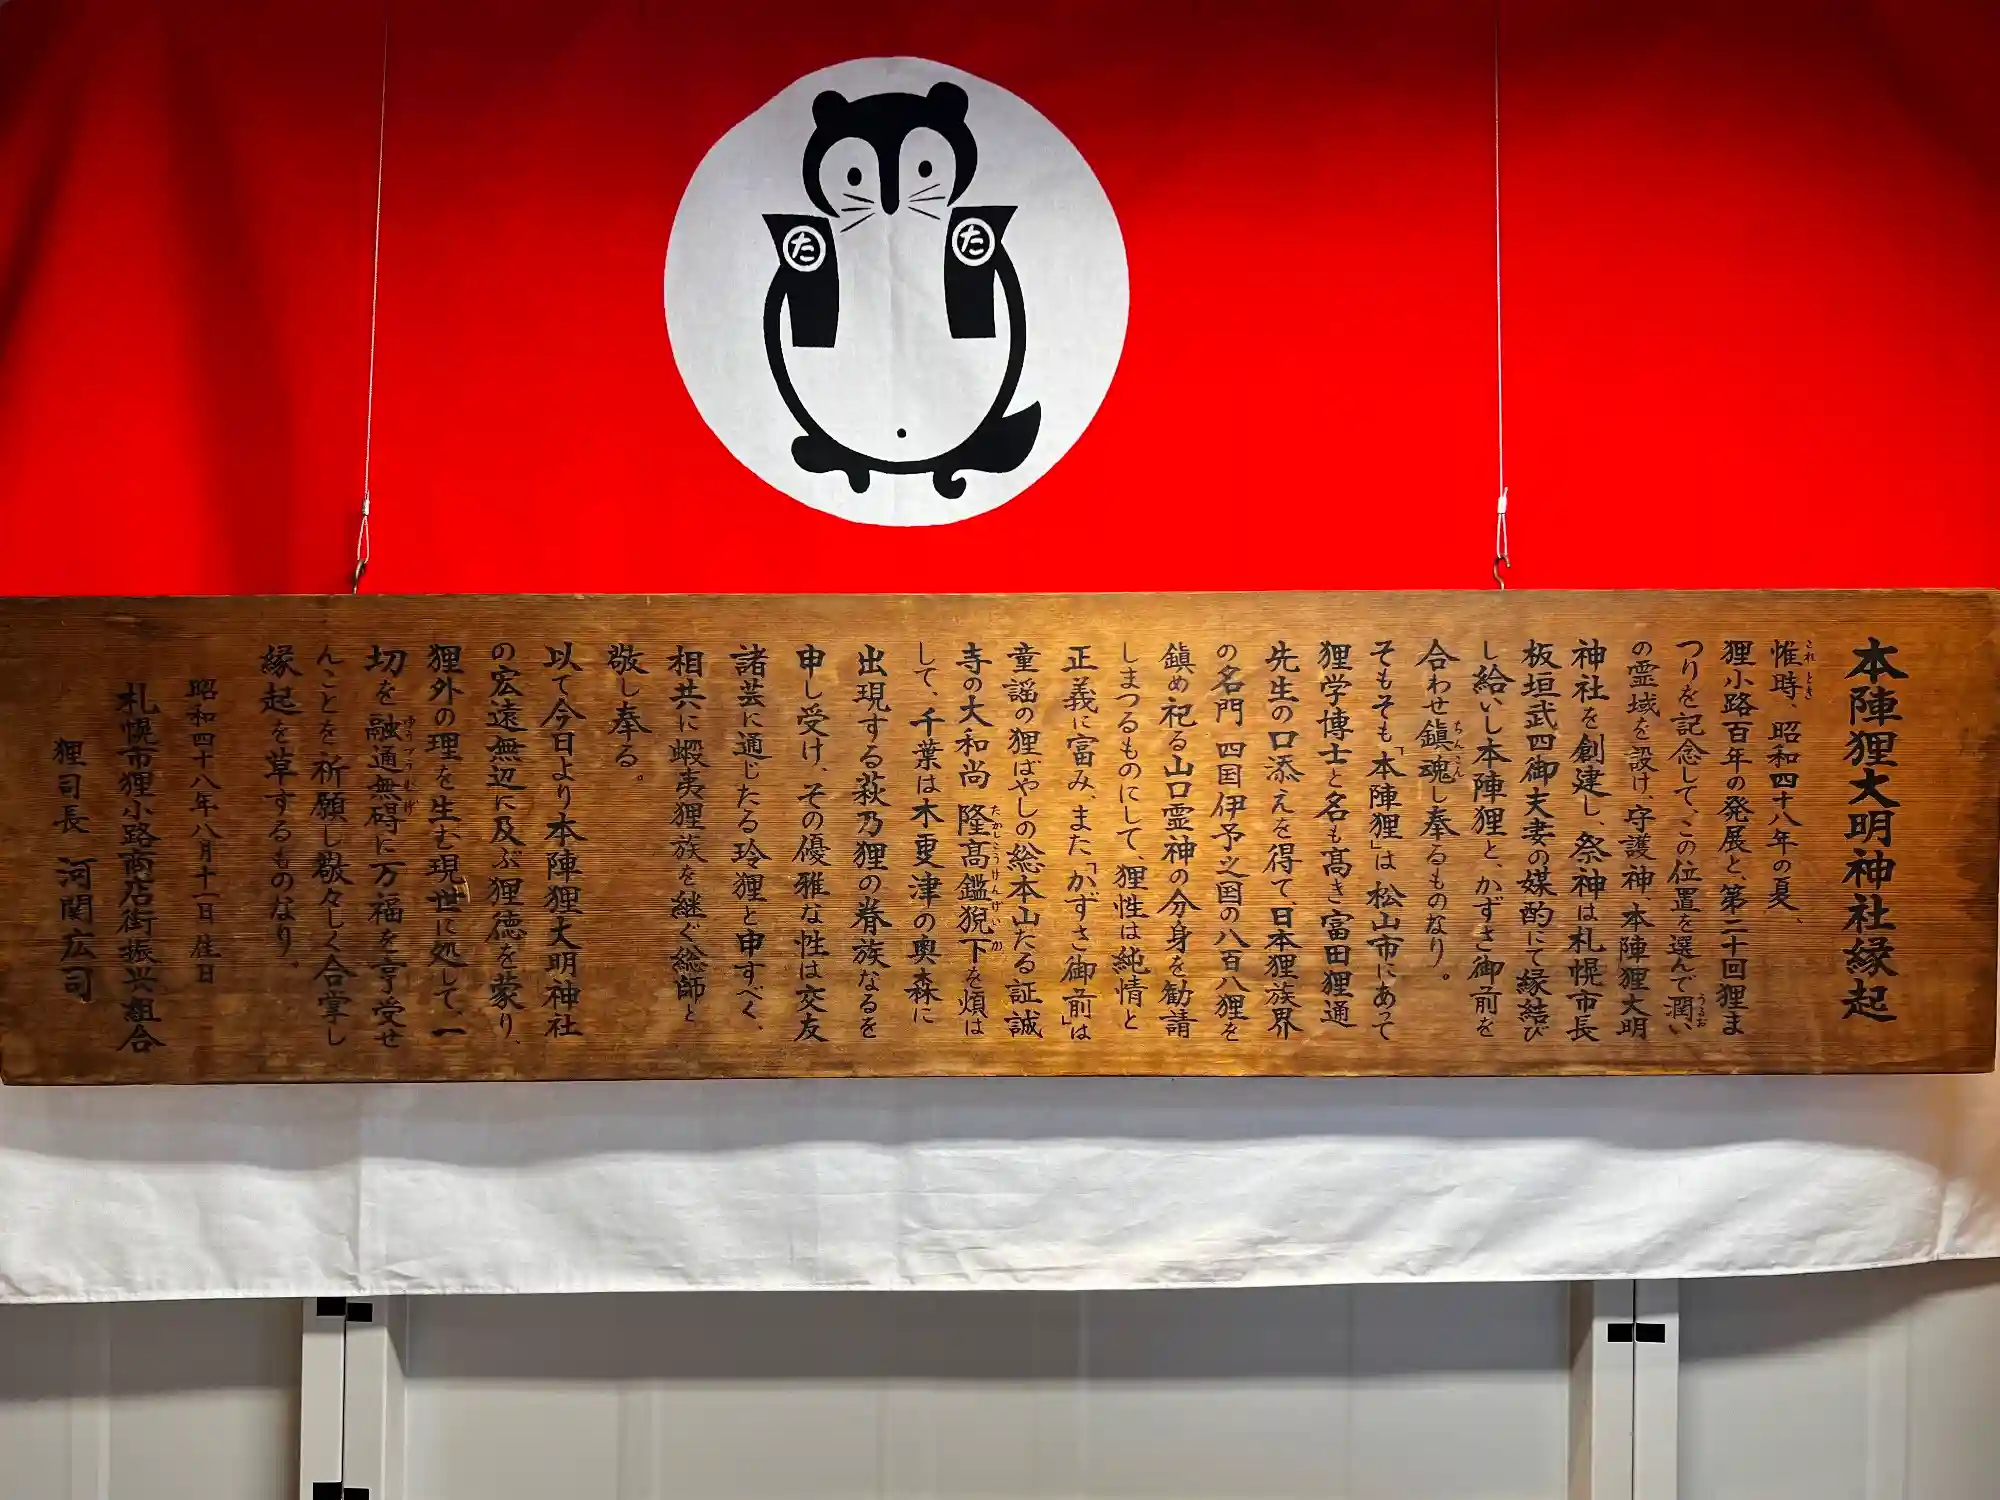 た
た
本陣狸大明神社縁起
惟時、昭和四十八年の夏、
これ とき
狸小路百年の発展と、第二十回狸ま
つりを記念して、この位置を選んで潤い
うるお
の霊域を設け、守護神、本陣狸大明
神社を創建し、祭神は札幌市長
板垣武四御夫妻の媒酌にて縁結び
し給いし本陣狸と、かずさ御前を
合わせ鎮魂し奉るものなり。
ちんこん
そもそも「本陣狸」は松山市にあって
狸学博士と名も髙き富田狸通
先生の口添えを得て、日本狸族界
の名門 四国伊予之国の八百八狸を
鎮め祀る山口霊神の分身を勧請
しまつるものにして、狸性は純情と
正義に富み、また「かずさ御前」は
童謡の狸ばやしの総本山たる証誠
寺の大和尚 隆髙鑑猊下を煩は
たかしこうけんげいか
して、千葉は木更津の奥森に
出現する萩乃狸の眷族なるを
申し受け、その優雅な性は交友
諸芸に通じたる玲狸と申すべく、
相共に蝦夷狸族を継ぐ総師と
敬し奉る。
以て今日より本陣狸大明神社
の宏遠無辺に及ぶ狸徳を蒙り、
狸外の理を生む現世に処して、一
切を融通無碍に万福を享受せ
ゆうづうむげ
んことを祈願し敬々しく合掌し
縁起を草するものなり。
昭和四十八年八月十一日 佳日
札幌市狸小路商店街振兴組合
狸司長 河関広司